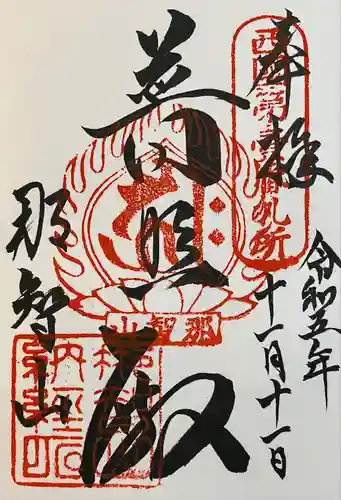 奉拝
西国第一番札所
令和五年
十一月十一日
普照殿
那智山
那智山